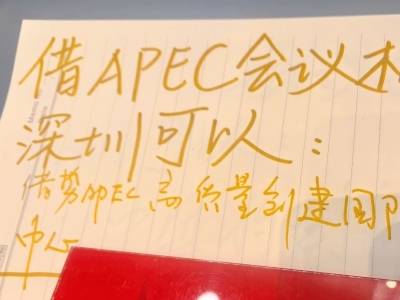 借APEC会议
深圳可以：
借势APEC高质量创建国
中心